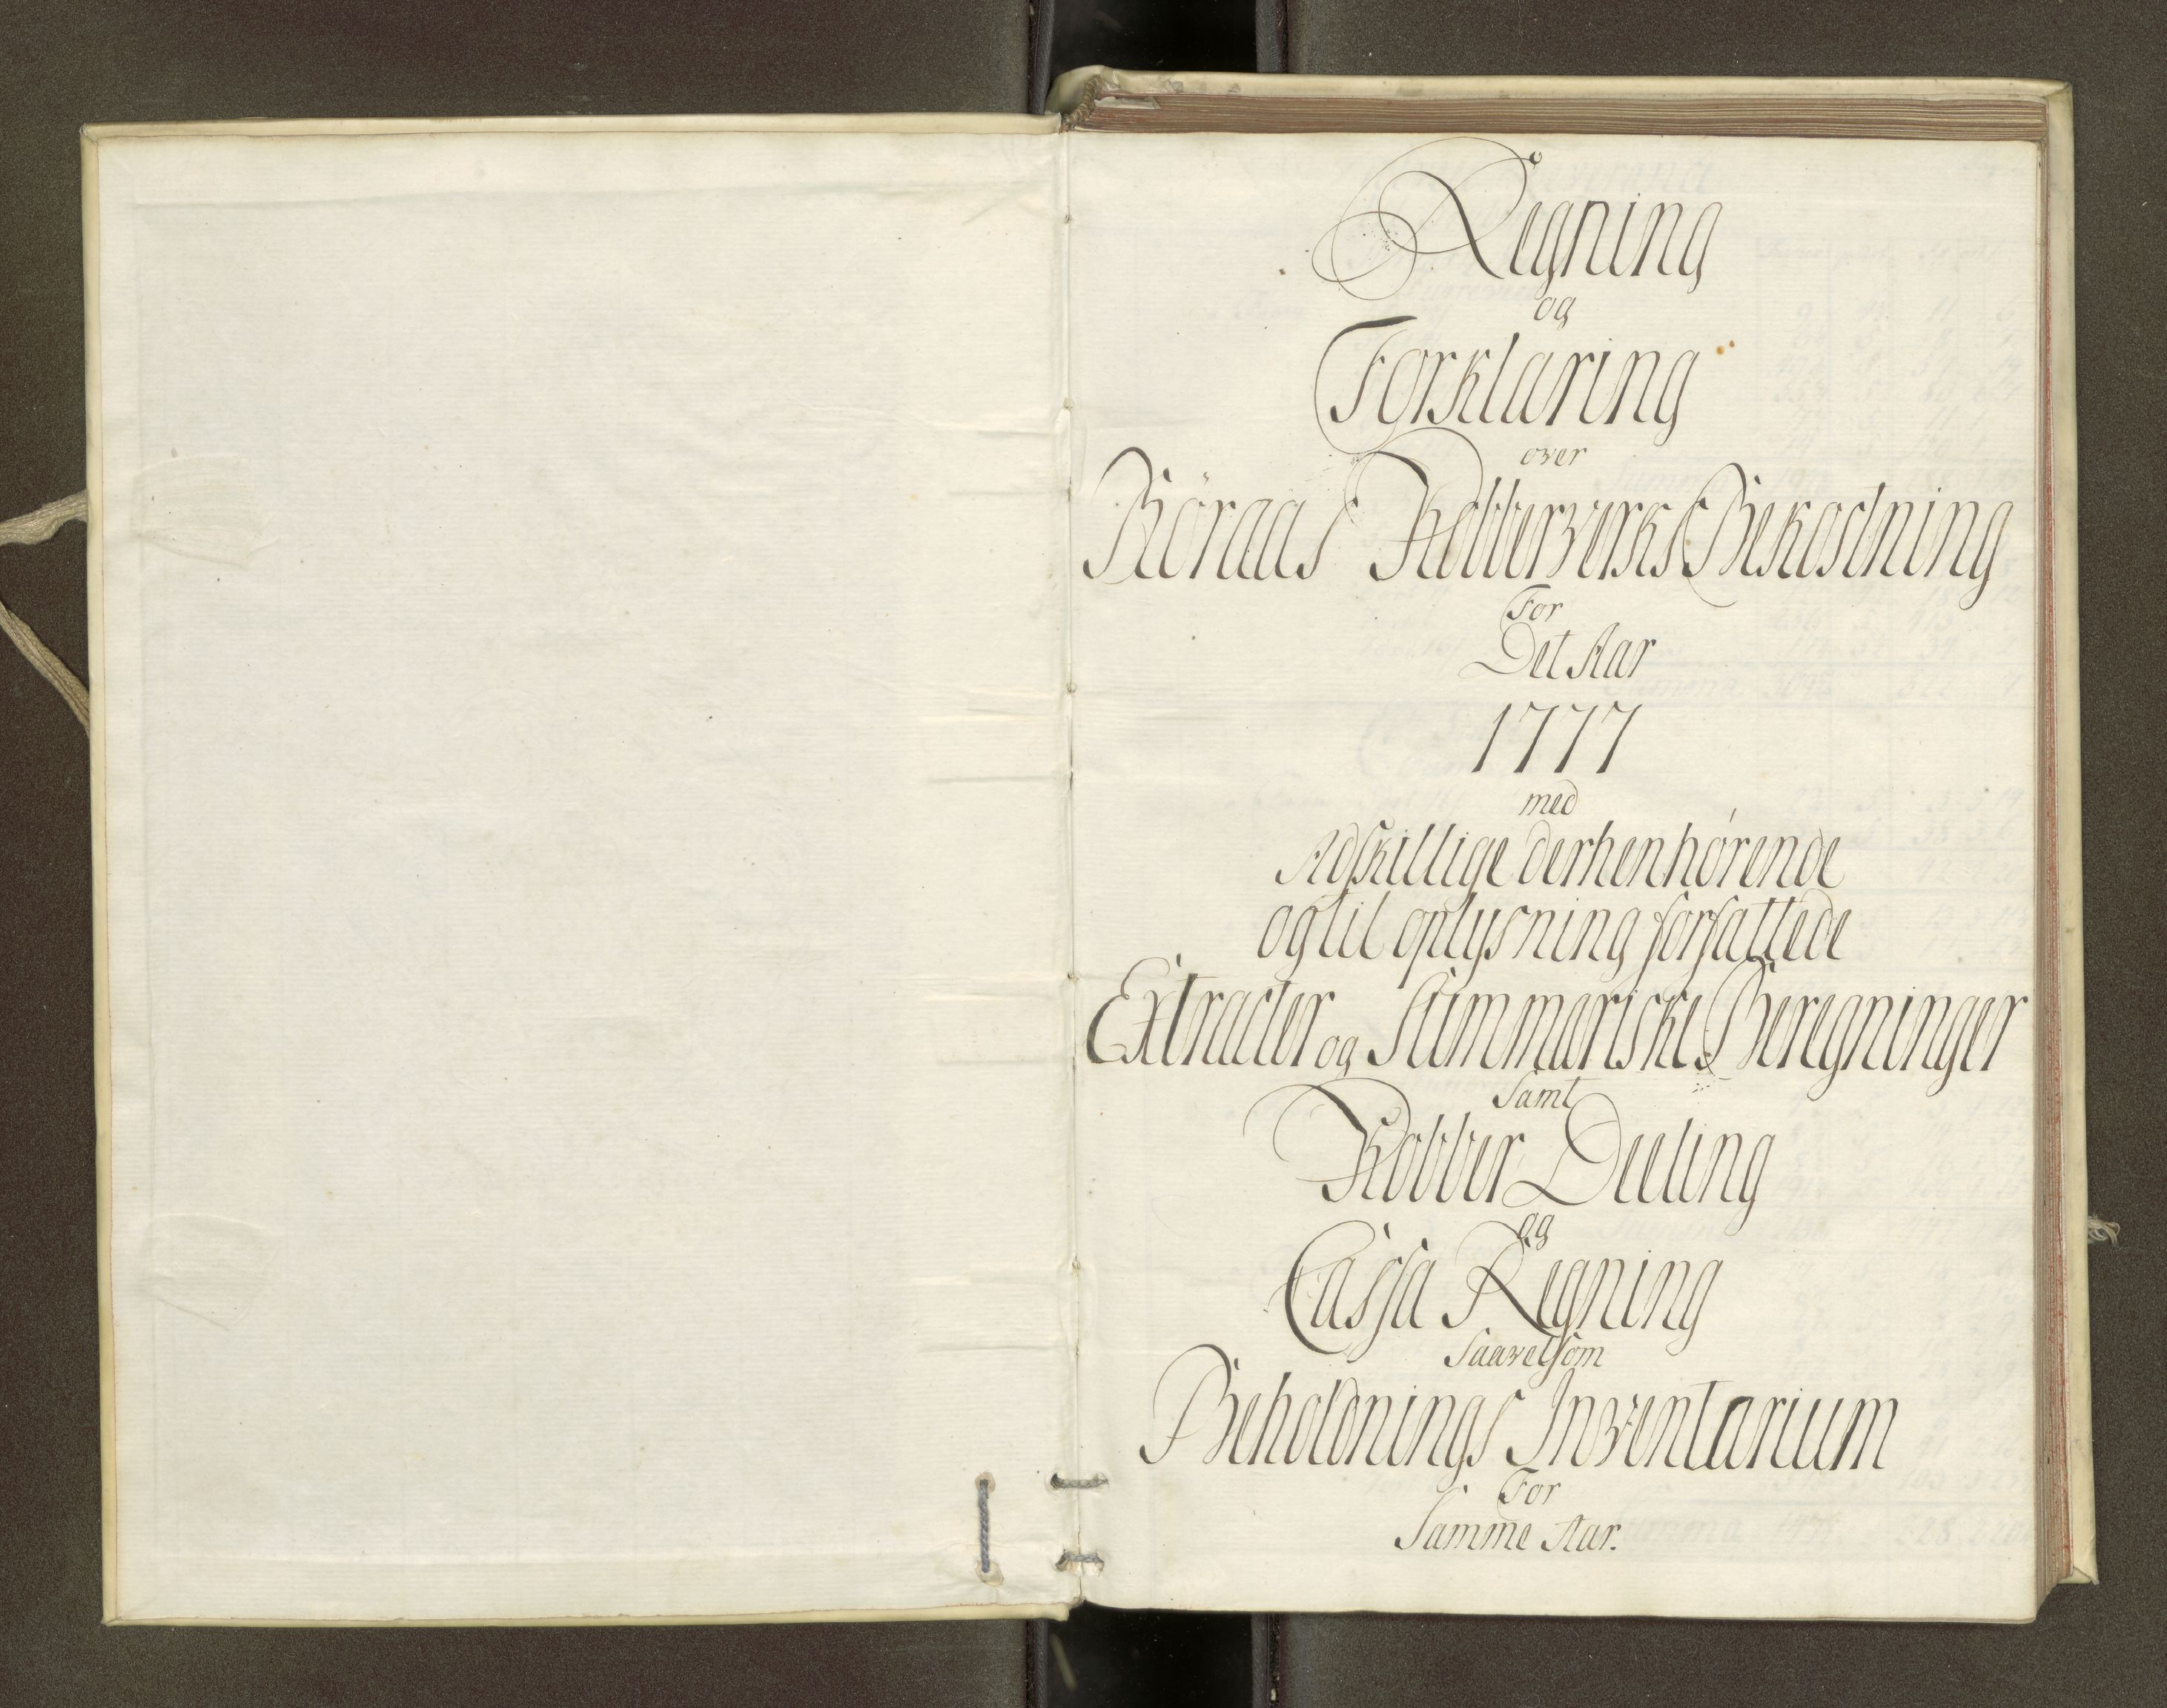 Regning
og
Forklaring
over
Röraas Kobberverks Bekostning
For
Det Aar
1777
med
Adskillige derhenhørende
og til oplysning forfattede
Extracter og Summariske Beregninger
Samt
Kobber Deeling
og
Cassa Regning
Saavelsom
Beholdnings Inventarium
For
Samme Aar.